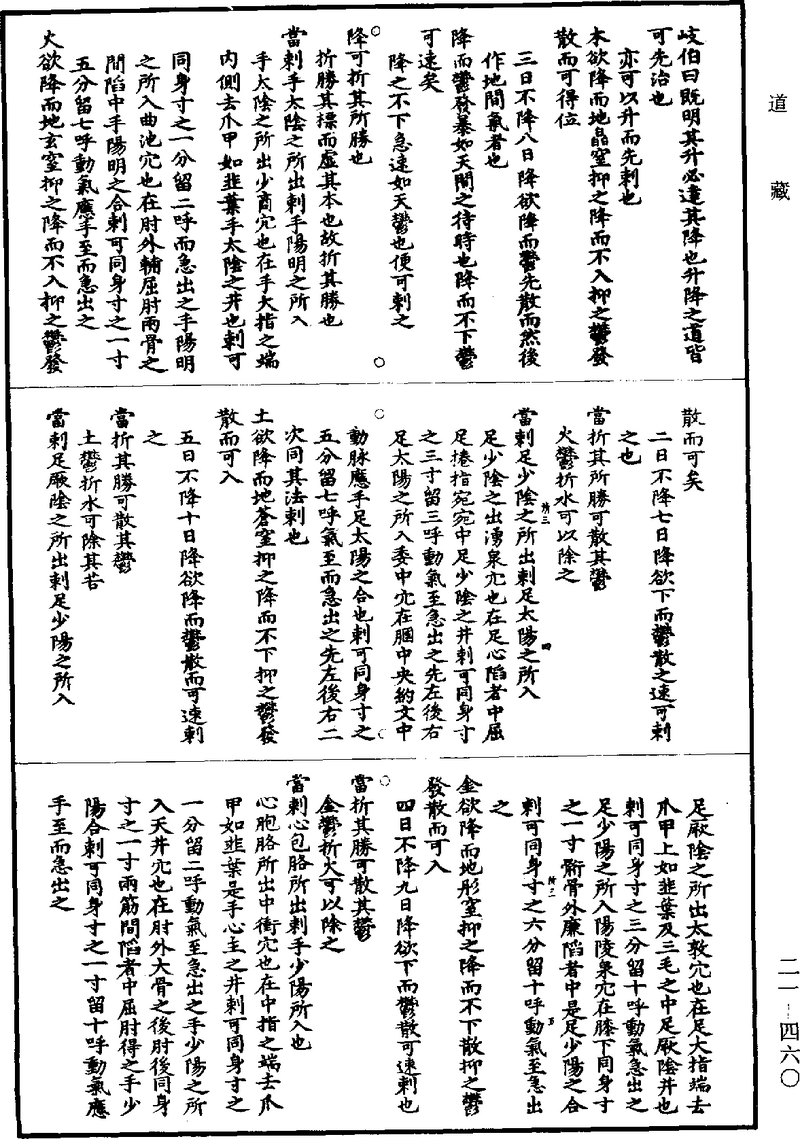 道藏
岐伯曰既明其升必達其降也升降之道皆
可先治也
亦可以升而先刺也
木欲降而地皛窒抑之降而不入抑之鬱發
散而可得位
三日不降八日降欲降而鬱先散而然後
作地間氣者也
降而鬱發暴如天間之待時也降而不下鬱
可速矣
降之不下急速如天鬱也便可刺之
降可折其所勝也
折勝其摽而虛其本也故折其勝也
當刺手太陰之所出刺手陽明之所入
手太陰之所出少商穴也在手大指之端
內側去爪甲如韭葉手太陰之井也刺可
同身寸之一分留二呼而急出之手陽明
之所入曲池穴也在肘外輔屈肘兩骨之
間陷中手陽明之合刺可同身寸之一寸
五分留七呼動氣應手至而急出之
火欲降而地玄窒抑之降而不入抑之鬱發
散而可矣
二日不降七日降欲下而鬱散之速可刺
之也
當折其所勝可散其鬱
火鬱折水可以除之
當刺足少陰之所出刺足太陽之所入
足少陰之出湧泉穴也在足心陷者中屈
足捲指宛宛中足少陰之井刺可同身寸
之三寸留三呼動氣至急出之先左後右
足太陽之所入委中穴在膕中央約文中
動脉應手足太陽之合也刺可同身寸之
五分留七呼氣至而急出之先左後右二
次同其法刺也
土欲降而地蒼窒抑之降而不下抑之鬱發
散而可入
五日不降十日降欲降而鬱散而可速刺
之
當折其勝可散其鬱
土鬱折水可除其苦
當刺足厥陰之所出刺足少陽之所入
足厥陰之所出太敦穴也在足大指端去
爪甲上如韭葉及三毛之中足厥陰井也
刺可同身寸之三分留十呼動氣急出之
足少陽之所入陽陵泉穴在膝下同身寸
之一寸䯒骨外廉陷者中是足少陽之合
刺可同身寸之六分留十呼動氣至急出
之
金欲降而地彤窒抑之降而不下散抑之鬱
發散而可入
四日不降九日降欲下而鬱散可速刺也
當折其勝可散其鬱
金鬱折火可以除之
當刺心包胳所出刺手少陽所入也
心胞胳所出中衝穴也在中指之端去爪
甲如韭葉是手心主之井刺可同身寸之
一分留二呼動氣至急出之手少陽之所
入天井穴也在肘外大骨之後肘後同身
寸之一寸兩筋間陷者中屈肘得之手少
陽合刺可同身寸之一寸留十呼動氣應
手至而急出之
二一-四六〇